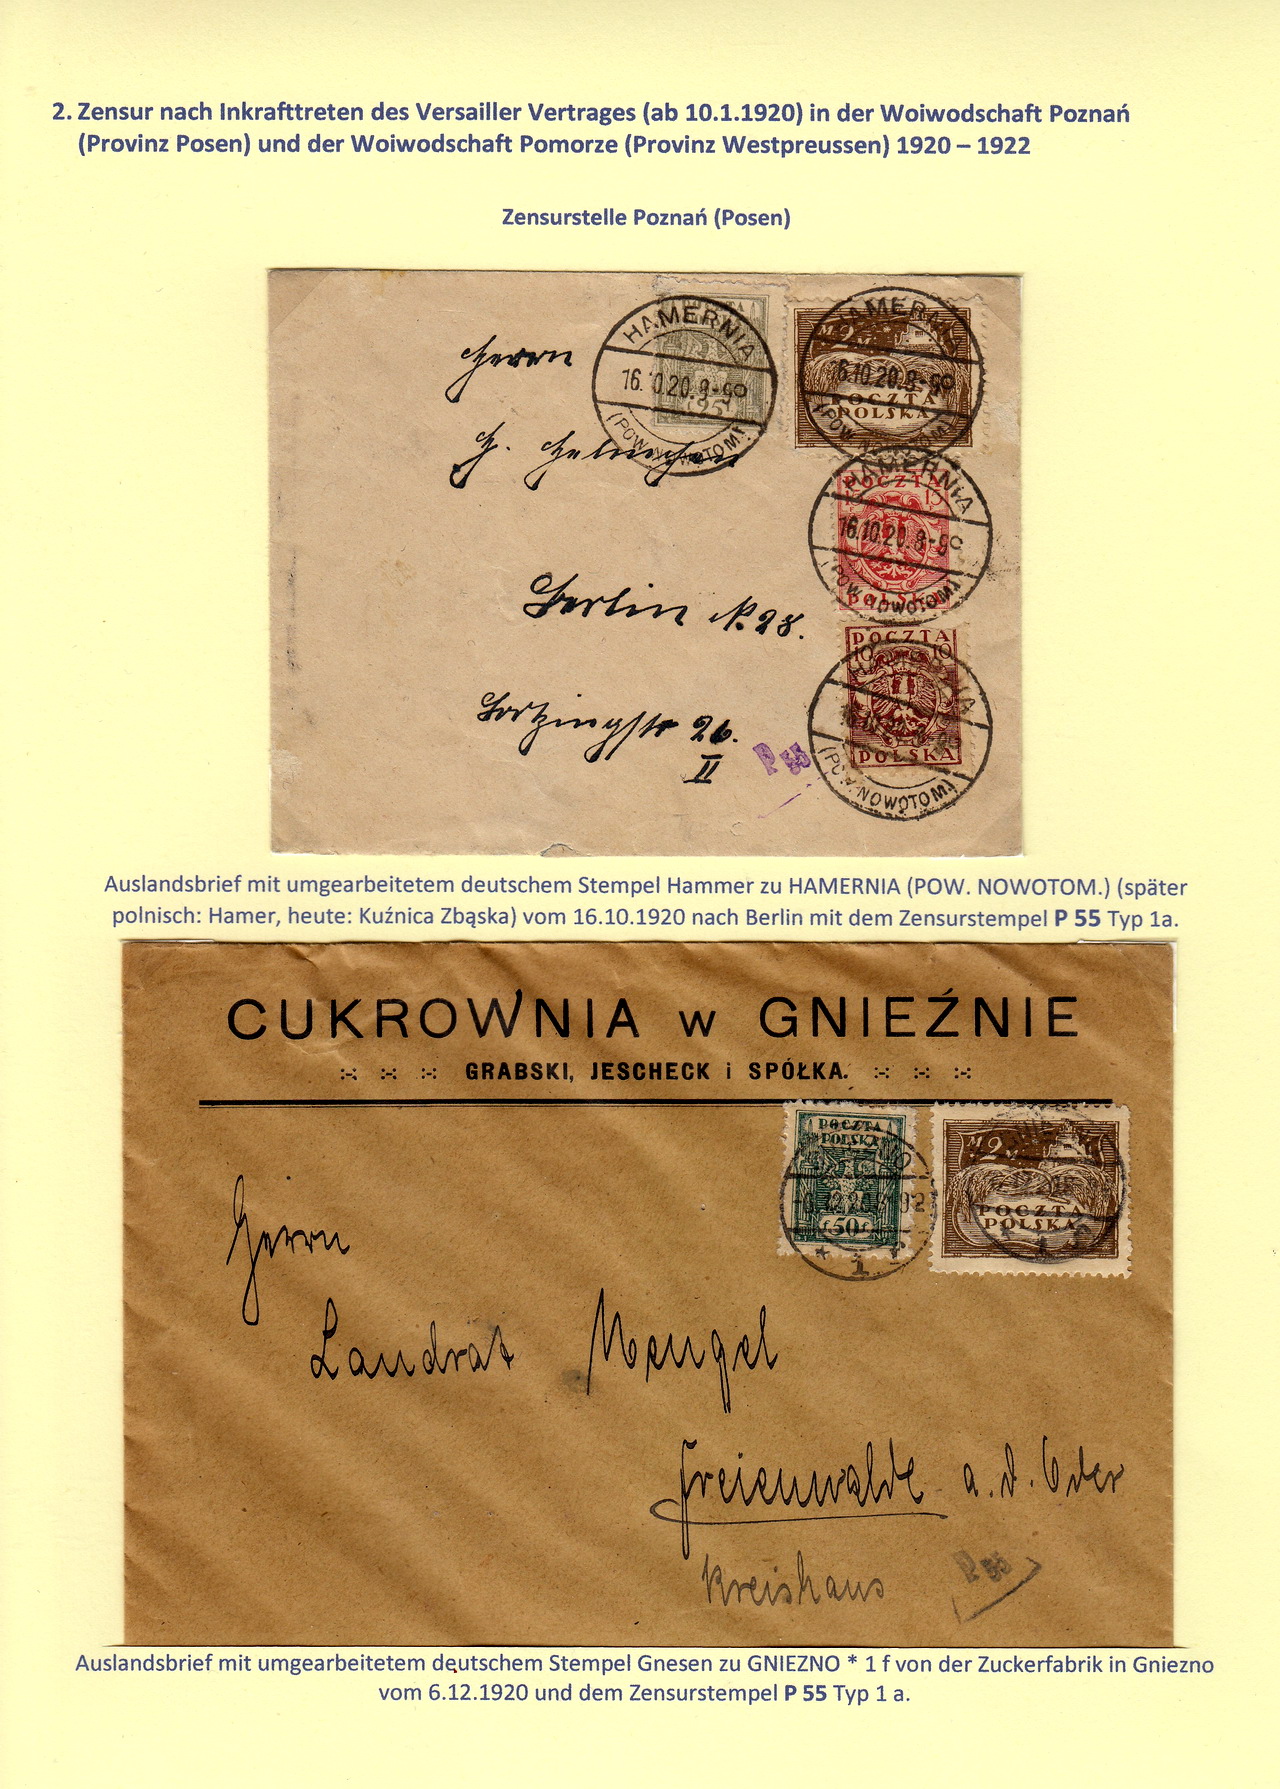 2. Zensur nach Inkrafttreten des Versailler Vertrages (ab 10.1.1920) in der Woiwodschaft Poznań
(Provinz Posen) und der Woiwodschaft Pomorze (Provinz Westpreussen) 1920 – 1922
Zensurstelle Poznań (Posen)
HAMERNIA
16.10.20.8-9º
(POW. NOWOTOM.)
25
M 2 M
POCZTA
POLSKA
HAMERNIA
16.10.20.8-9º
(POW. NOWOTOM.)
Herrn
H.
POCZTA
15 15
POLSKA
HAMERNIA
16.10.20.8-9º
(POW. NOWOTOM.)
Berlin N. 28.
POCZTA
10 10
POLSKA
(POW. NOWOTOM.)
Lortzingstr 26.
II
P 55
Auslandsbrief mit umgearbeitetem deutschem Stempel Hammer zu HAMERNIA (POW. NOWOTOM.) (später
polnisch: Hamer, heute: Kuźnica Zbąska) vom 16.10.1920 nach Berlin mit dem Zensurstempel P 55 Typ 1a.
CUKROWNIA w GNIEŹNIE
GRABSKI, JESCHECK i SPÓŁKA.
POCZTA
POLSKA
50
* 1 f
M 2 M
POCZTA
POLSKA
Herrn
Landrat Mengel
Freienwalde a. d. Oder
Kreishaus
P 55
Auslandsbrief mit umgearbeitetem deutschem Stempel Gnesen zu GNIEZNO * 1 f von der Zuckerfabrik in Gniezno
vom 6.12.1920 und dem Zensurstempel P 55 Typ 1 a.